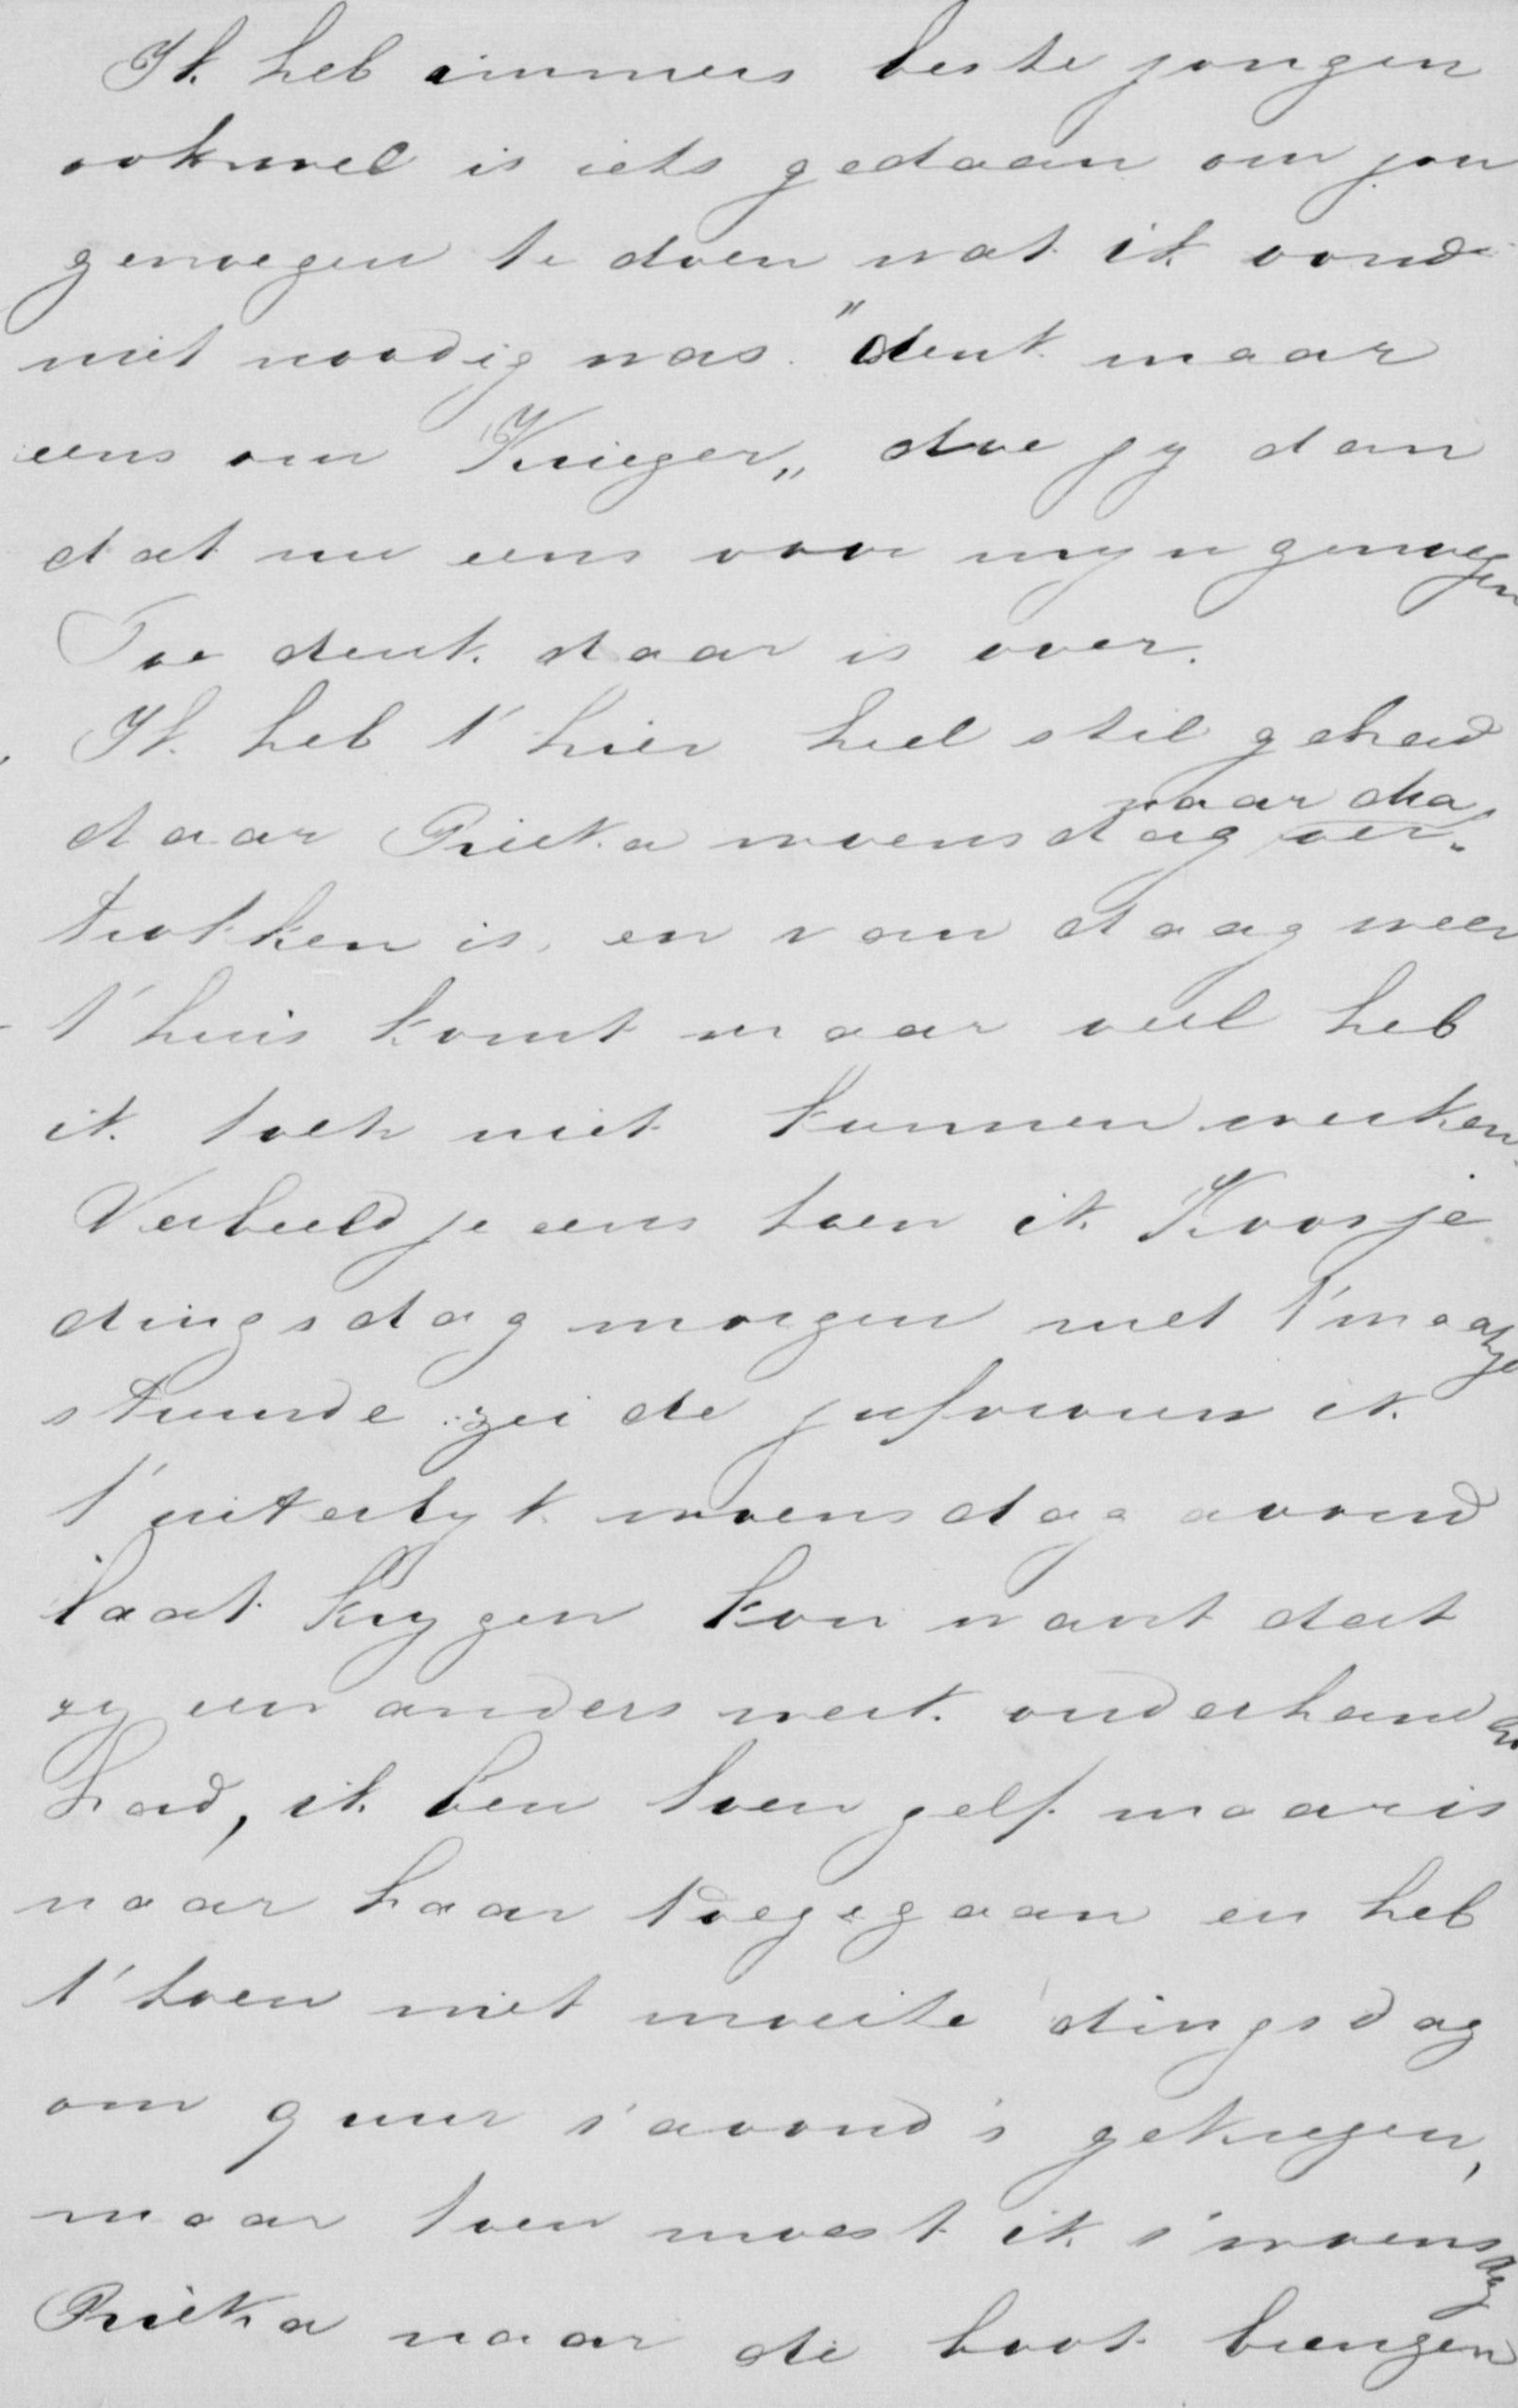 Ik heb immers beste jongen
ook wel is iets gedaan om jou
genoegen te doen wat ik vond
niet noodig was. "denk maar
eens om Krieger„ doe jy dan
dat nu eens voor myn genoegen
Toe denk daar is over.
Ik heb t' hier heel stil gehad
daar Rieka woensdag naar dha ver„
trokken is, en van daag weer
t'huis komt maar veel heb
ik toch niet kunnen werken.
Verbeeld je eens toen ik Koosje
dingsdag morgen met t' maatje
stuurde zei de jufvrouw ik
t' uiterlyk woensdag avond
laat krygen kon want dat
zy een anders werk onderhanden
had, ik ben toen zelf maar is
naar haar toegegaan en heb
t' toen met moeite dingsdag
om 9 uur s'avond's gekregen,
maar toen moest ik s'woensdag
Rieka naar de boot brengen